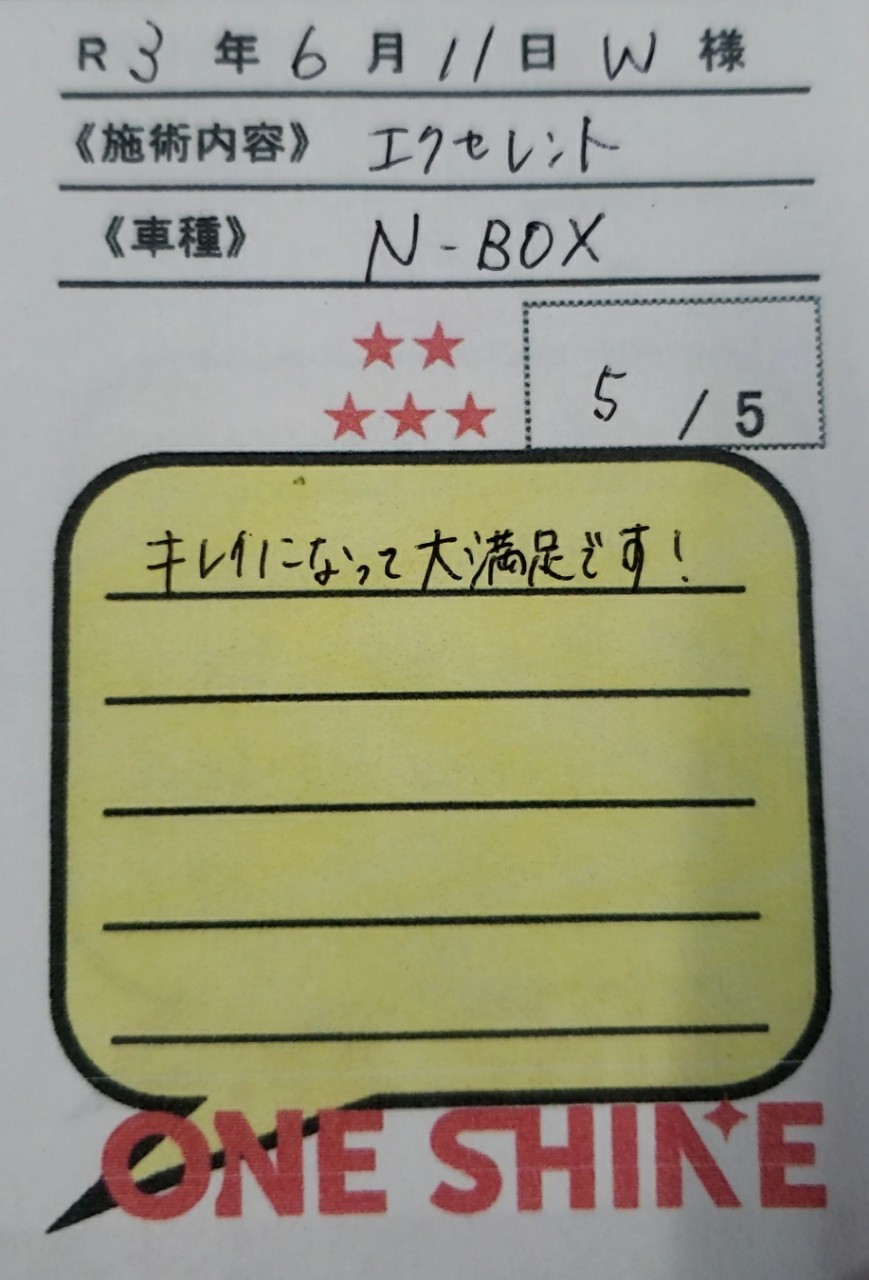 R 3 年 6 月 11 日 W 様
《施術内容》 エクセレント
《車種》 N-BOX
5 / 5
キレイになって大満足です!
ONE SHINE